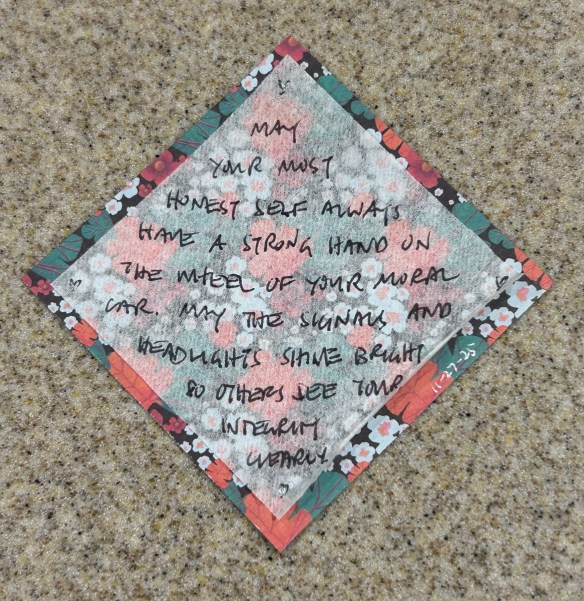 MAY
YOUR MOST
HONEST SELF ALWAYS
HAVE A STRONG HAND ON
THE WHEEL OF YOUR MORAL
CAR. MAY THE SIGNALS AND
HEADLIGHTS SHINE BRIGHT
SO OTHERS SEE YOUR
INTEGRITY
CLEARLY
11-27-25